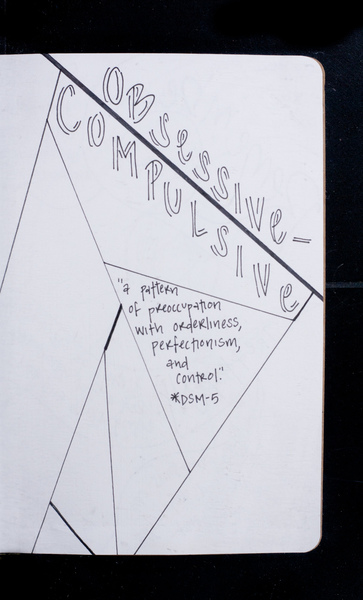 OBSeSSIVe-
COMPULSIVe
"a pattern
of preoccupation
with orderliness,
perfectionism,
and
control."
*DSM-5